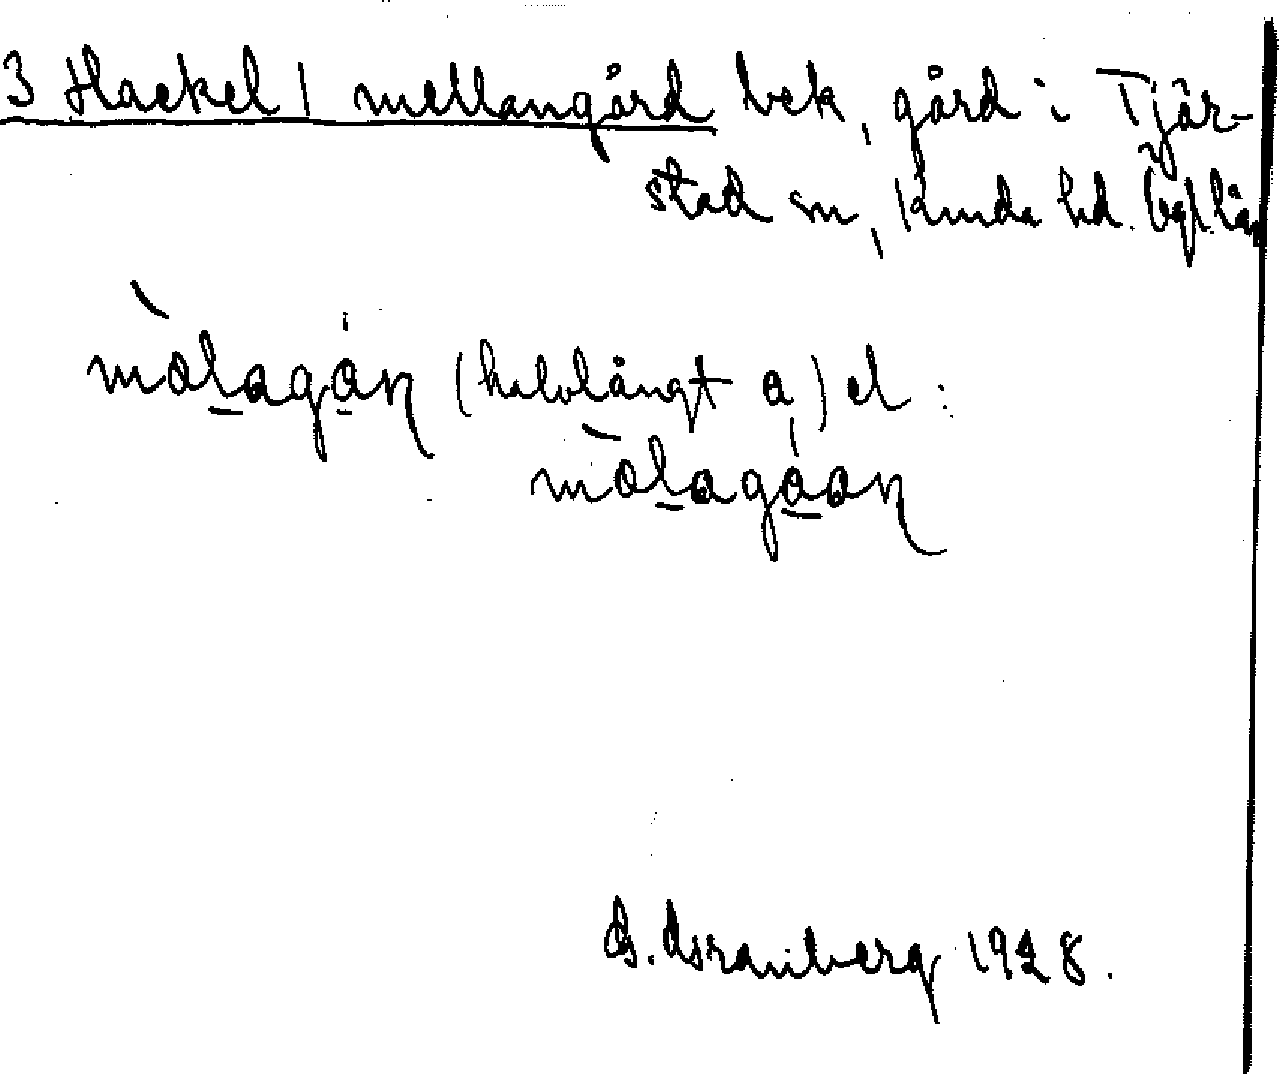 3 Hackel / mellangård bek, gård i Tjär-
stad sn, Kinda hd. Ögl. län
mòlagån (halvlångt a) el.:
mòlagåan
1928.